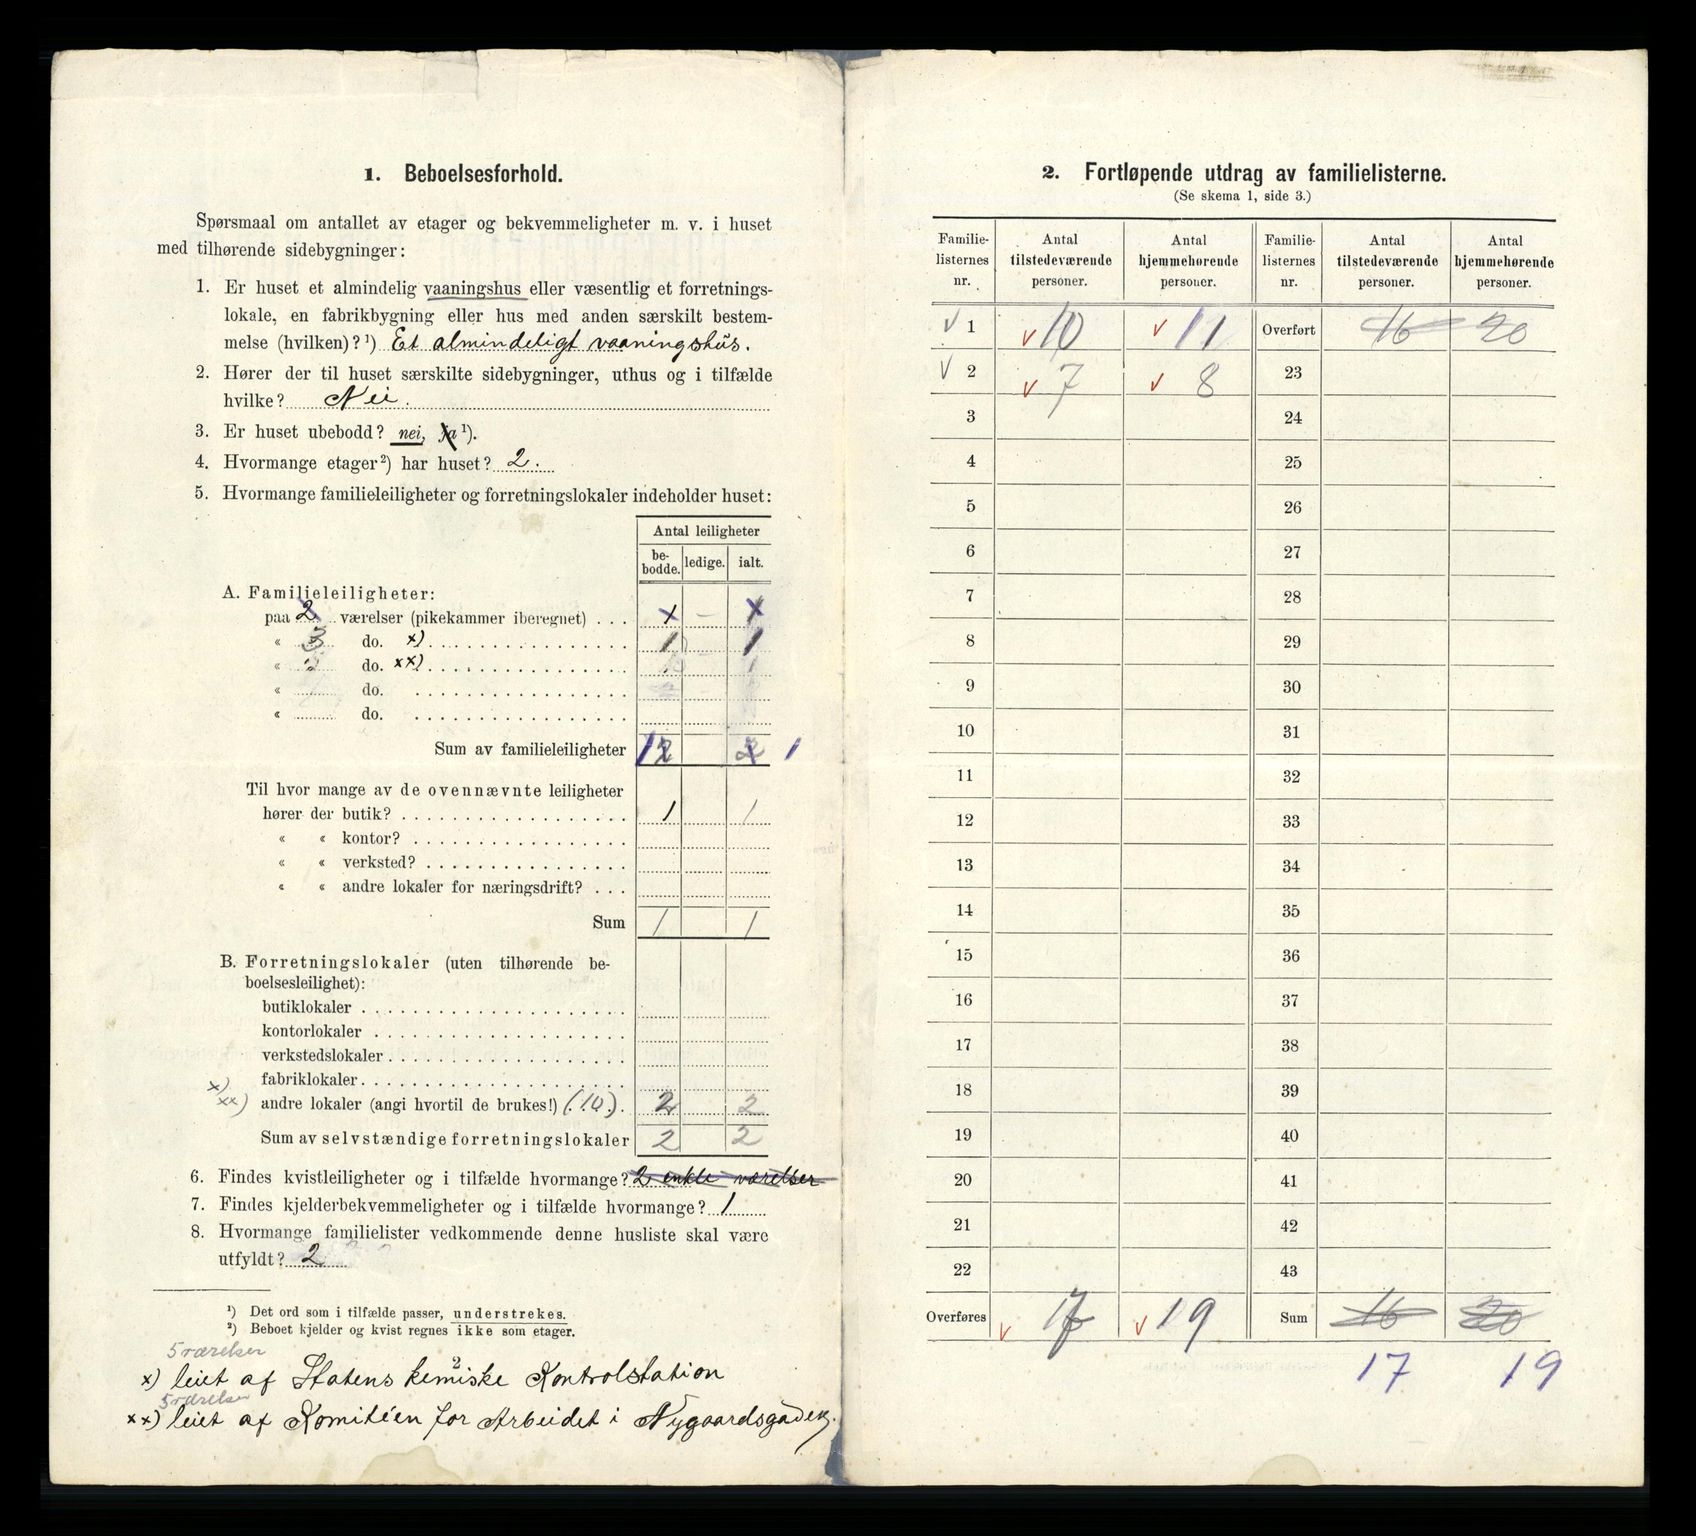 1. Beboelsesforhold.
Spørsmaal om antallet av etager og bekvemmeligheter m. v. i huset
med tilhørende sidebygninger:
1. Er huset et almindelig vaaningshus eller væsentlig et forretnings-
lokale, en fabrikbygning eller hus med anden særskilt bestem-
melse (hvilken)?¹) Et almindeligt vaaningshus.
2. Hører der til huset særskilte sidebygninger, uthus og i tilfælde
hvilke? Nei.
3. Er huset ubebodd? nei, ja ¹).
4. Hvormange etager²) har huset? 2.
5. Hvormange familieleiligheter og forretningslokaler indeholder huset:
Antal leiligheter
be-bodde. ledige. ialt.
A. Familieleiligheter:
paa 2 værelser (pikekammer iberegnet) . . . x – x
« 3 do. x) 1 1
« 2 do. xx) 1
« do.
« do.
Sum av familieleiligheter 1 2 2 1
Til hvor mange av de ovennævnte leiligheter
hører der butik? 1 1
« « kontor?
« « verksted?
« « andre lokaler for næringsdrift? . . .
Sum 1 1
B. Forretningslokaler (uten tilhørende be-
boelsesleilighet):
butiklokaler
kontorlokaler
verkstedslokaler
fabriklokaler
x)
xx) andre lokaler (angi hvortil de brukes!) (10) . 2 2
Sum av selvstændige forretningslokaler 2 2
6. Findes kvistleiligheter og i tilfælde hvormange? 2 enkle værelser
7. Findes kjelderbekvemmeligheter og i tilfælde hvormange? 1
8. Hvormange familielister vedkommende denne husliste skal være
utfyldt? 2
¹) Det ord som i tilfælde passer, understrekes.
²) Beboet kjelder og kvist regnes ikke som etager.
5 værelser
x) leiet af Statens kemiske 2 Kontrolstation
5 værelser
xx) leiet af Komitéen for Arbeidet i Nygaardsgaden.
2. Fortløpende utdrag av familielisterne.
(Se skema 1, side 3.)
Familie-listernes nr. Antal tilstedeværende personer. Antal hjemmehørende personer. Familie-listernes nr. Antal tilstedeværende personer. Antal hjemmehørende personer.
V 1 v 10 v 11 Overført 16 20
V 2 v 7 v 8 23
3 24
4 25
5 26
6 27
7 28
8 29
9 30
10 31
11 32
12 33
13 34
14 35
15 36
16 37
17 38
18 39
19 40
20 41
21 42
22 43
Overføres v 17 v 19 Sum 16 20
17 19